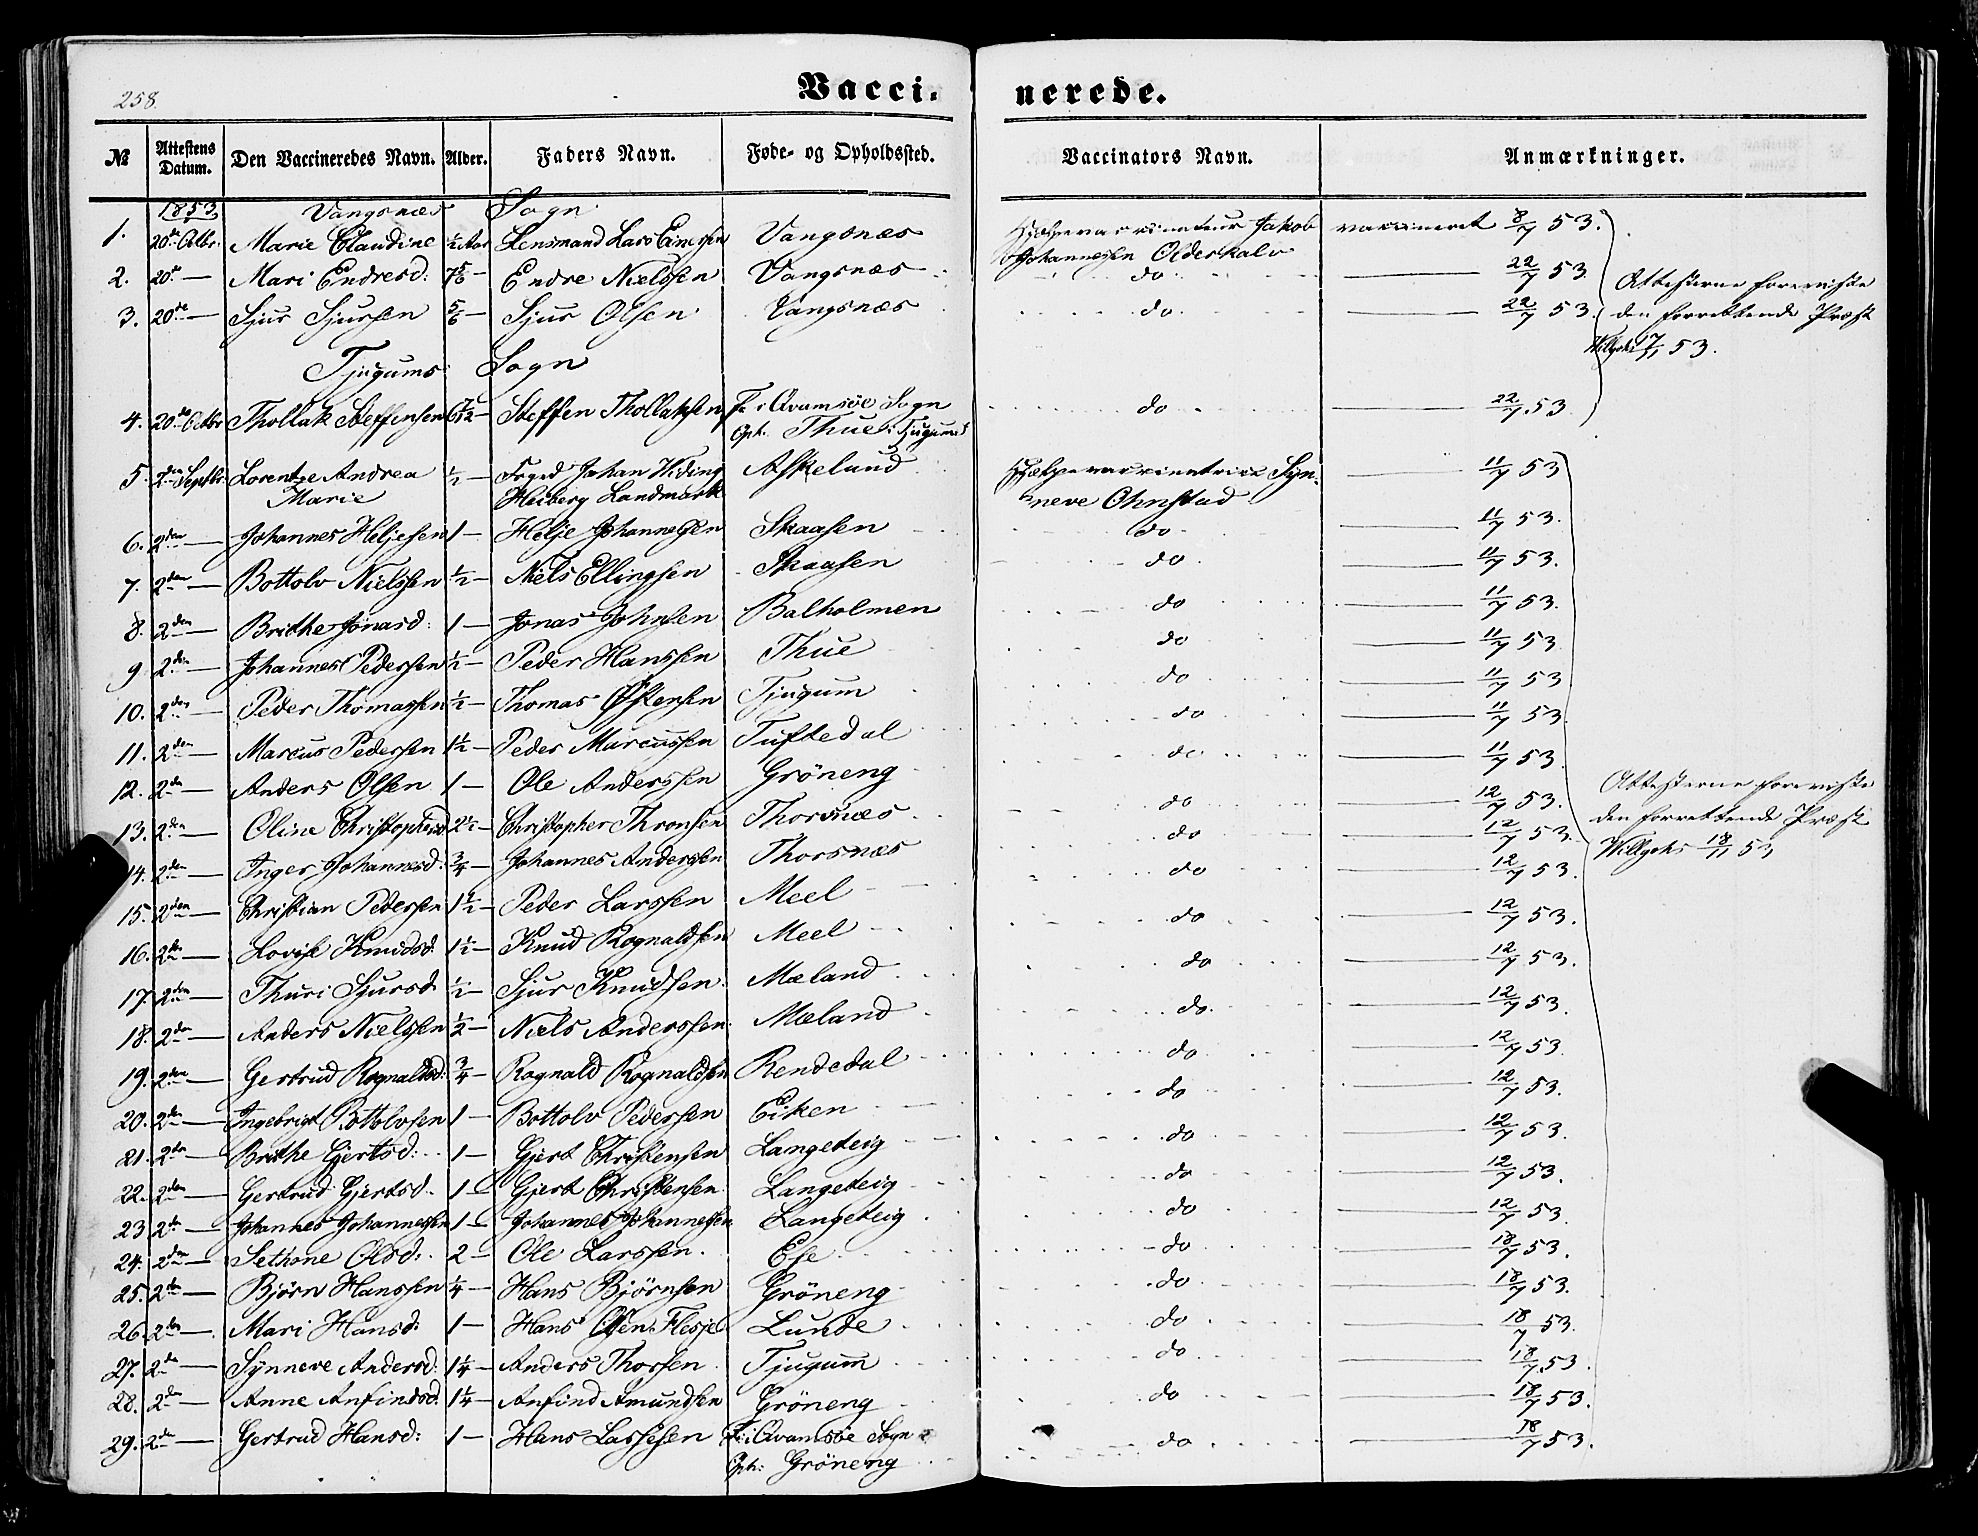 258.
Vacci- nerede.
№ Attestens Datum. Den Vaccineredes Navn. Alder. Faders Navn. Føde- og Opholdssted. Vaccinators Navn. Anmærkninger.
1853 Vangsnæs Sogn
1. 20de Octbr: Marie Claudine ½ Aar Lensmand Lars Vangsnæs Hjelpevaccinateur Jakob vaccineret 8/7 53.
Johannessen Olderskalv
2. 20de — Mari Endresd: 7 5/6 — Endre Nielssen Vangsnæs do — 22/7 53
3. 20de — Sjur Sjursen 5/6 — Sjur Olsen Vangsnæs do — 22/7 53.
Attesterne foreviste
den forrettende Præst
Willgohs 17/11 53.
Tjugums Sogn
4. 20de Octbr Thollak Steffensen 6 7/12 — Steffen Thollaksen F. i Qvamsøe Sogn do — 22/7 53.
Oph. Thue i Tjugums
5. 2den Septbr. Lorentze Andrea ½ — Foged Johan Hiding Askelund Hjelpevaccinatrice Syn- — 11/7 53
Marie Heiberg Landmark neve Ohnstad
6. 2den — Johannes Heljesen 1 — Helje Johannesen Skaasen do — 11/7 53.
7. 2den — Bottolv Nielssen ½ — Niels Ellingsen Skaasen do — 11/7 53.
8. 2den — Brithe Jonasd: 1 — Jonas Johnsen Balholmen do — 11/7 53.
9. 2den — Johannes Pederssen ½ — Peder Hanssen Thue do — 11/7 53
10. 2den — Peder Thomassen ½ — Thomas Østensen Tjugum do — 11/7 53
11. 2den — Marcus Pederssen 1½ — Peder Marcussen Tuftedal do — 11/7 53
12. 2den — Anders Olsen 1 — Ole Anderssen Grøneng do — 11/7 53
13. 2den — Oline Christophersd 2½ — Christopher Thronsen Thorsnæs do — 12/7 53.
14. 2den — Inger Johannesd: ¾ — Johannes Anderssen Thorsnæs do — 12/7 53.
15. 2den — Christian Pederssen 1½ — Peder Larssen Meel do — 12/7 53.
Attesterne foreviste
den forrettende Præst
Willgohs 18/11 53
16. 2den — Lovise Knudsd. 1½ — Knud Rognaldsen Meel do — 12/7 53.
17. 2den — Thuri Sjursd. ½ — Sjur Knudsen Mæland do — 12/7 53.
18. 2den — Anders Nielssen ½ — Niels Anderssen Mæland do — 12/7 53.
19. 2den — Gertrud Rognaldsd: ¾ — Rognald Rognaldsen Rendedal do — 12/7 53.
20. 2den — Ingebrigt Bottolvsen 1 — Bottolv Pederssen Eiken do — 12/7 53.
21. 2den — Brithe Gjertsd: 1 — Gjert Christensen Langeteig do — 12/7 53.
22. 2den — Gertrud Gjertsd. 1 — Gjert Christensen Langeteig do — 12/7 53.
23 2den — Johannes Johannessen 1 — Johannes Johannessen Langeteig do — 12/7 53.
24. 2den — Sethne Olsd: 2 — Ole Larssen Ese do — 18/7 53.
25. 2den — Bjørn Hanssen ¼ — Hans Bjørnsen Grøneng do — 18/7 53.
26. 2den — Mari Hansd: 1 — Hans Olsen Flesje Lunde do — 18/7 53.
27. 2den — Synneve Andersd: 1¼ — Anders Thorsen Tjugum do — 18/7 53.
28. 2den — Anne Anfindsd. 1¼ — Anfind Amundsen Grøneng do — 18/7 53.
29. 2den — Gertrud Hansd: 1 — Hans Lassesen F. i Qvamsøe Sogn do — 18/7 53.
Oph: Grøneng